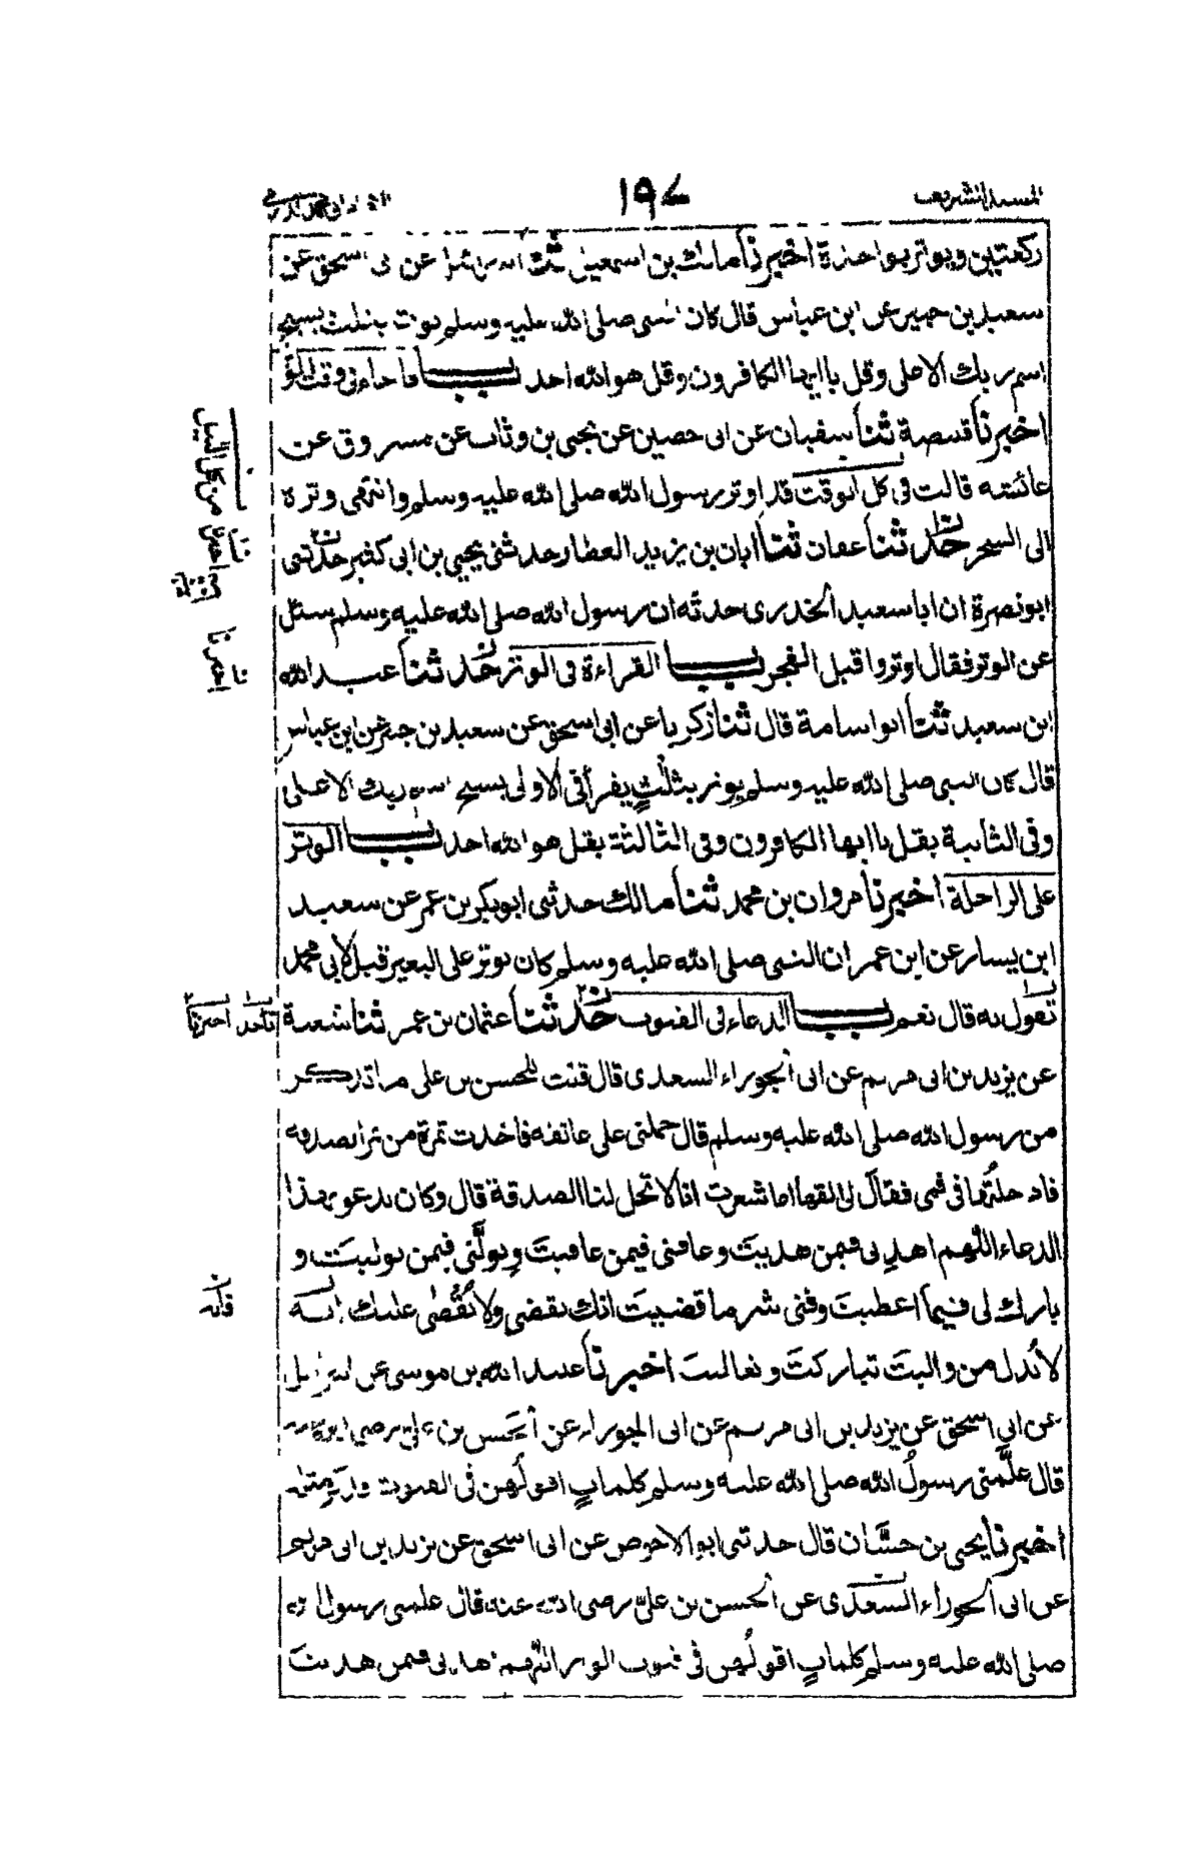 المسند الشريف
١٩٧
ركعتين ويوتر بواحدة اخبرنا مالك بن اسمعيل ثنا عن ابى اسحق عن
سعيد بن جبير عن ابن عباس قال كان النبى صلى الله عليه وسلم يوتر بثلث بسبح
اسم ربك الاعلى وقل يا ايها الكافرون وقل هو الله احد باب ما جاء فى وقت الوتر
اخبرنا قبيصة ثنا سفيان عن ابى حصين عن يحيى بن وثاب عن مسروق عن
عائشه قالت فى كل الوقت قد اوتر رسول الله صلى الله عليه وسلم وانتهى وتره
الى السحر حدثنا عفان ثنا ابان بن يزيد العطار حدثنى يحيى بن ابى كثير حدثنى
ابو نضرة ان ابا سعيد الخدرى حدثه ان رسول الله صلى الله عليه وسلم سئل
عن الوتر فقال اوتروا قبل الفجر باب القراءة فى الوتر حدثنا عبد الله
ابن سعيد ثنا ابو اسامة قال ثنا زكريا عن ابى اسحق عن سعيد بن جبير عن ابن عباس
قال كان النبى صلى الله عليه وسلم يوتر بثلث يقرأ فى الاولى بسبح اسم ربك الاعلى
وفى الثانية بقل يا ايها الكافرون وفى الثالثة بقل هو الله احد باب الوتر
على الراحلة اخبرنا مروان بن محمد ثنا مالك حدثنى ابو بكر بن عمر عن سعيد
ابن يسار عن ابن عمر ان النبى صلى الله عليه وسلم كان يوتر على البعير قيل لابى محمد
تقول به قال نعم باب الدعاء فى القنوت حدثنا عثمان بن عمر ثنا شعبة
عن يزيد بن ابى مريم عن ابى الجوراء السعدى قال قلت للحسن بن على ما تذكر
من رسول الله صلى الله عليه وسلم قال حملنى على عاتقه فاخذت تمرة من تمر الصدقه
فادخلتها فى فمى فقال لى القها اما شعرت انا لا تحل لنا الصدقة قال وكان يدعو بهذا
الدعاء اللهم اهدنى فيمن هديتَ وعافنى فيمن عافيتَ وتولَّنى فيمن توليتَ و
بارك لى فيما اعطيتَ وقنى شر ما قضيتَ انك تقضى ولا يُقضٰى عليك انه
لا يُذل من واليتَ تباركتَ وتعاليتَ اخبرنا عبيد الله بن موسى عن اسرائيل
عن ابى اسحق عن يزيد بن ابى مريم عن ابى الجوراء عن الحسن بن على رضى
قال علَّمنى رسولُ الله صلى الله عليه وسلم كلماتٍ اقولُهن فى القنوت
اخبرنا يحيى بن حسَّان قال حدثنى ابو الاحوص عن ابى اسحق عن يزيد بن ابى مريم
عن ابى الحوراء السعدى عن الحسن بن علىّ رضى الله عنه قال علمنى رسول الله
صلى الله عليه وسلم كلماتٍ اقولُهن فى قنوت الوتر اللهم اهدنى فيمن هديتَ
من كل الليل
نا
اخبرنا
نا
احمد اخبرنا
فانه